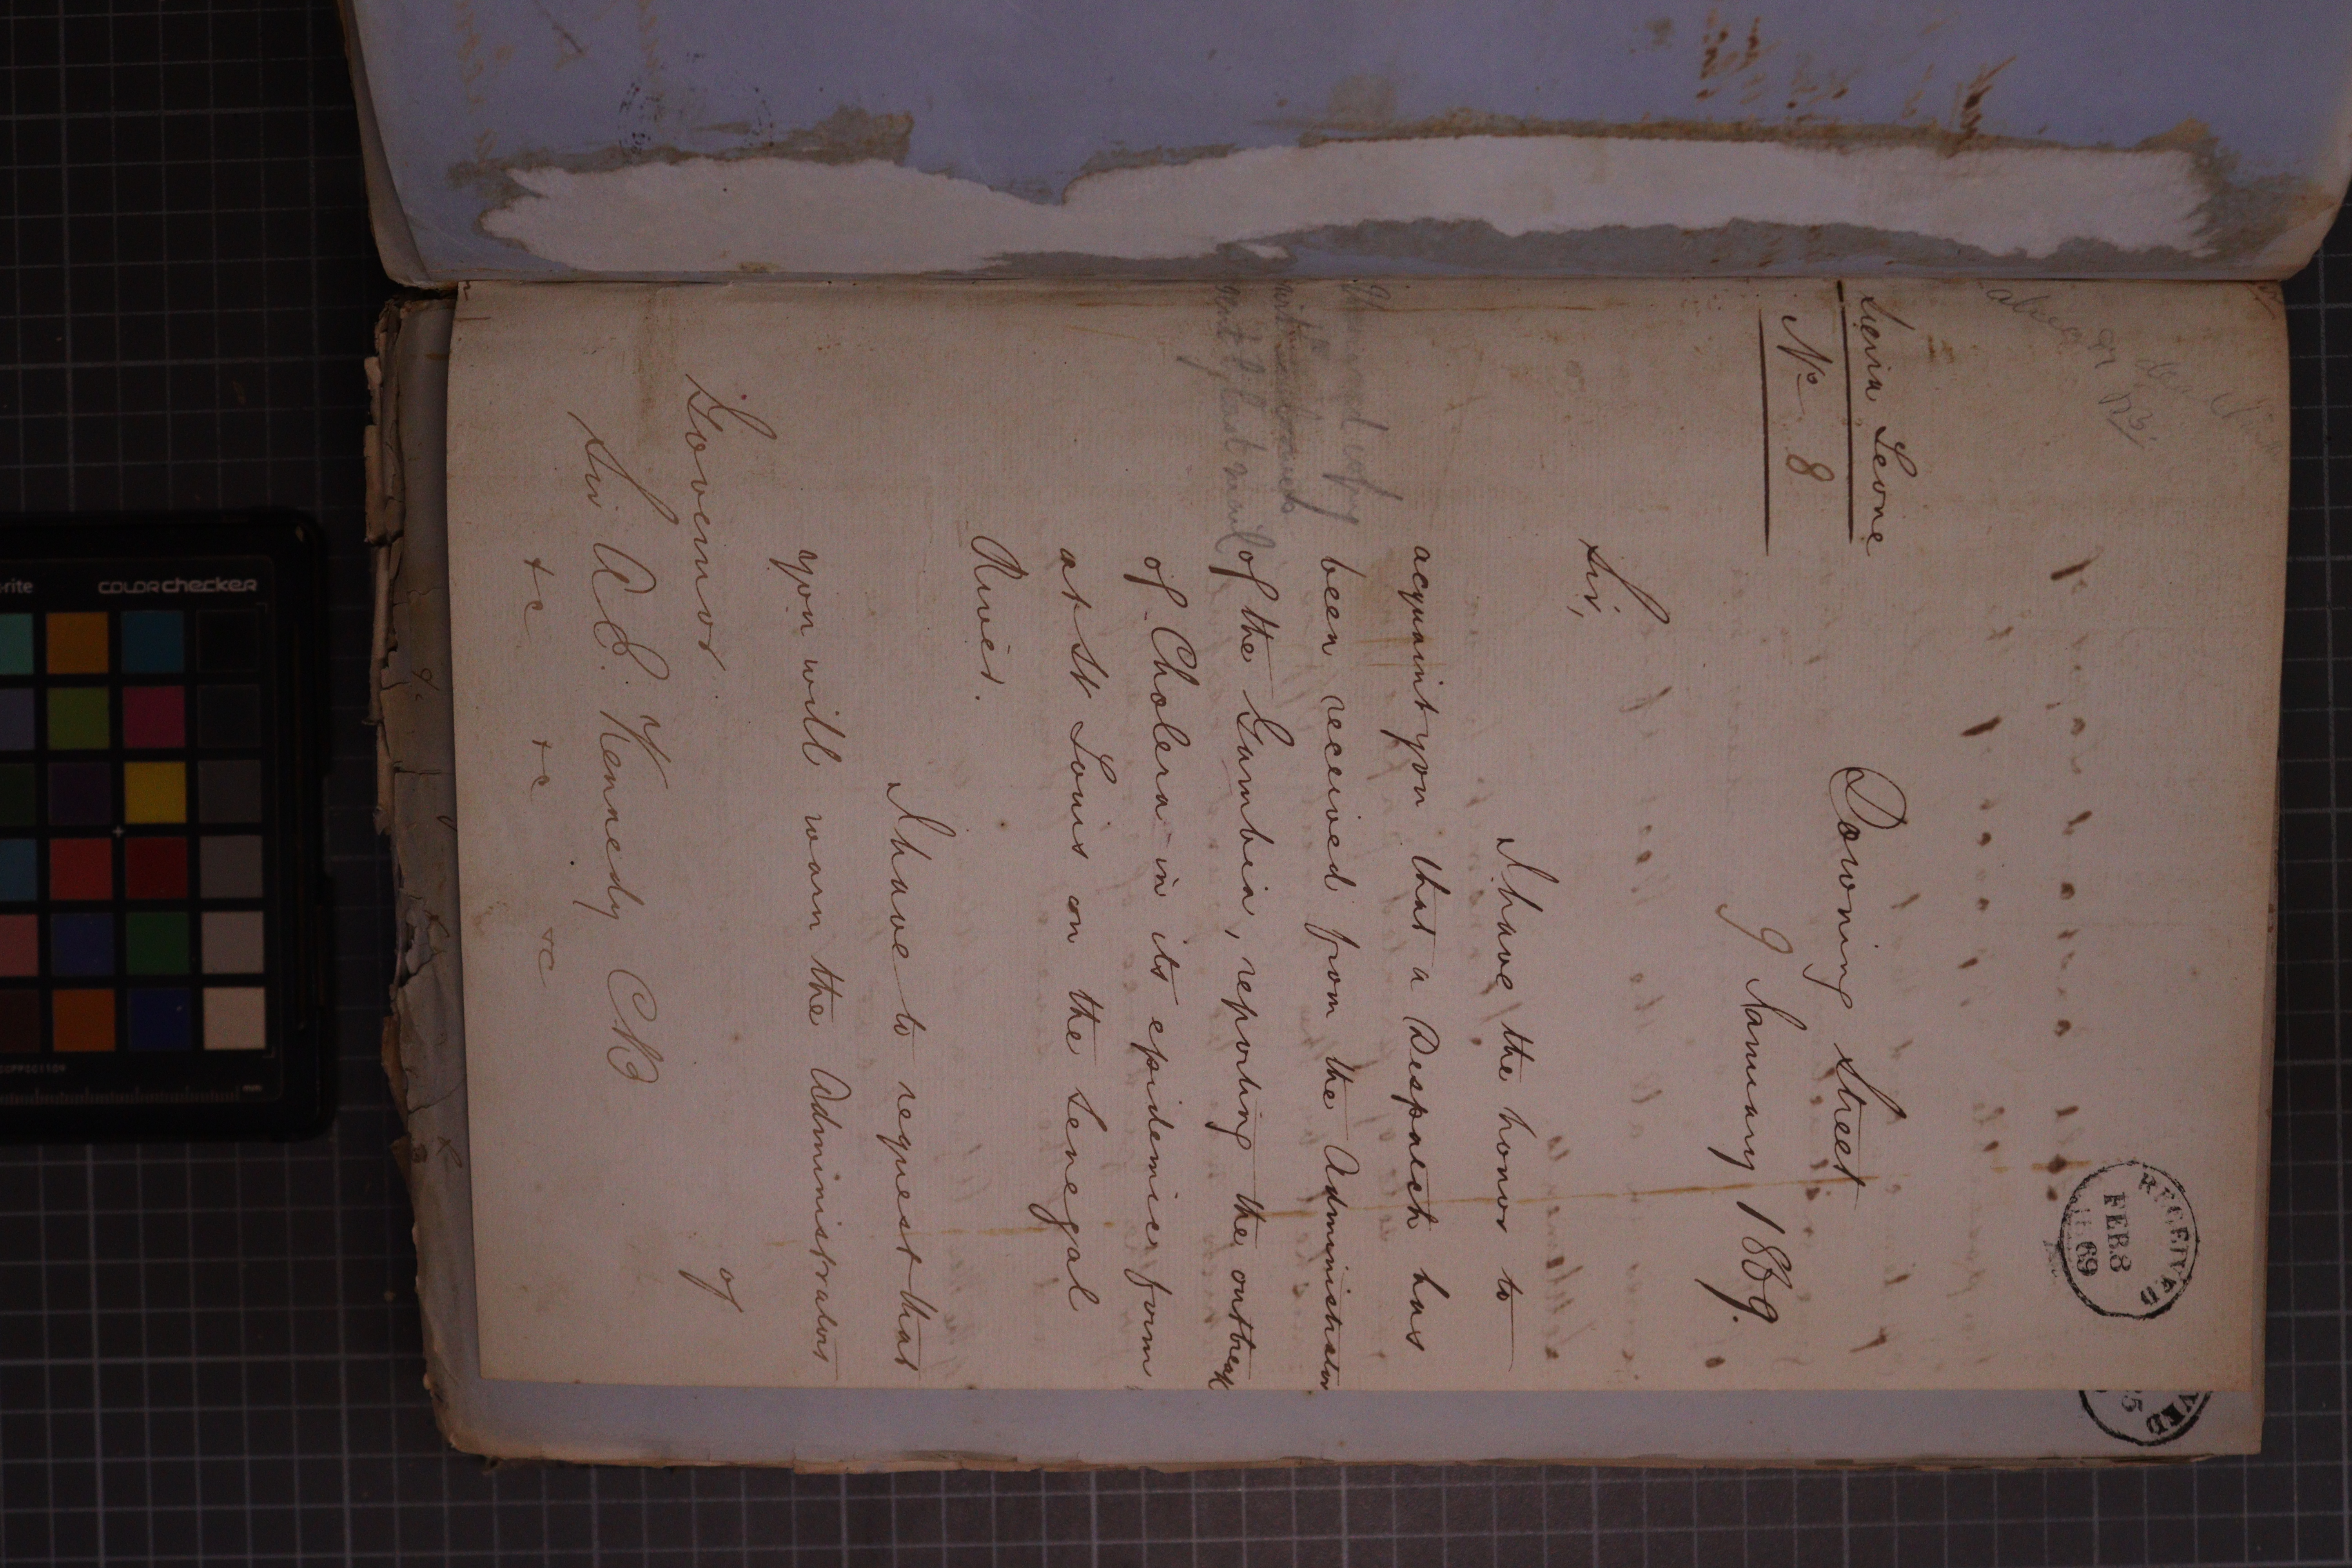 RECEIVED
FEB 8
69
Sierra Leone
No 8
Downing Street
9 January 1869.
Sir,
I have the honor to
acquaint you that a Despatch has
been received from the Administrator
of the Gambia, reporting the outbreak
of Cholera in its epidemic form
at St Louis on the Senegal
River.
I have to request that
you will warn the Administrators
of
Governor
Sir A E. Kennedy CB
&c &c &c
copy
with
sent by last mail
VED
colorchecker